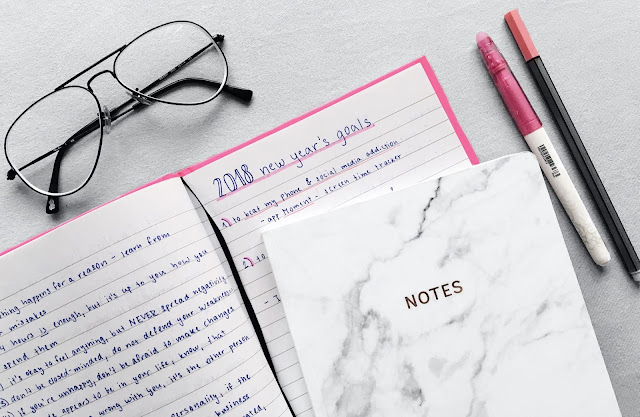 thing happens for a reason - learn from
mistakes
4 hours is enough, but it's up to you how you
spend them
it's okay to feel anything, but NEVER spread negativity
don't be closed-minded, do not defend your weakness
if you're unhappy, don't be afraid to make changes
appears to be in your life, know, that
wrong with you, it's the other person
personality, if the
business
2018 new year's goals
1) to beat my phone & social media addiction
- app Moment - screen time tracker
2) to
NOTES